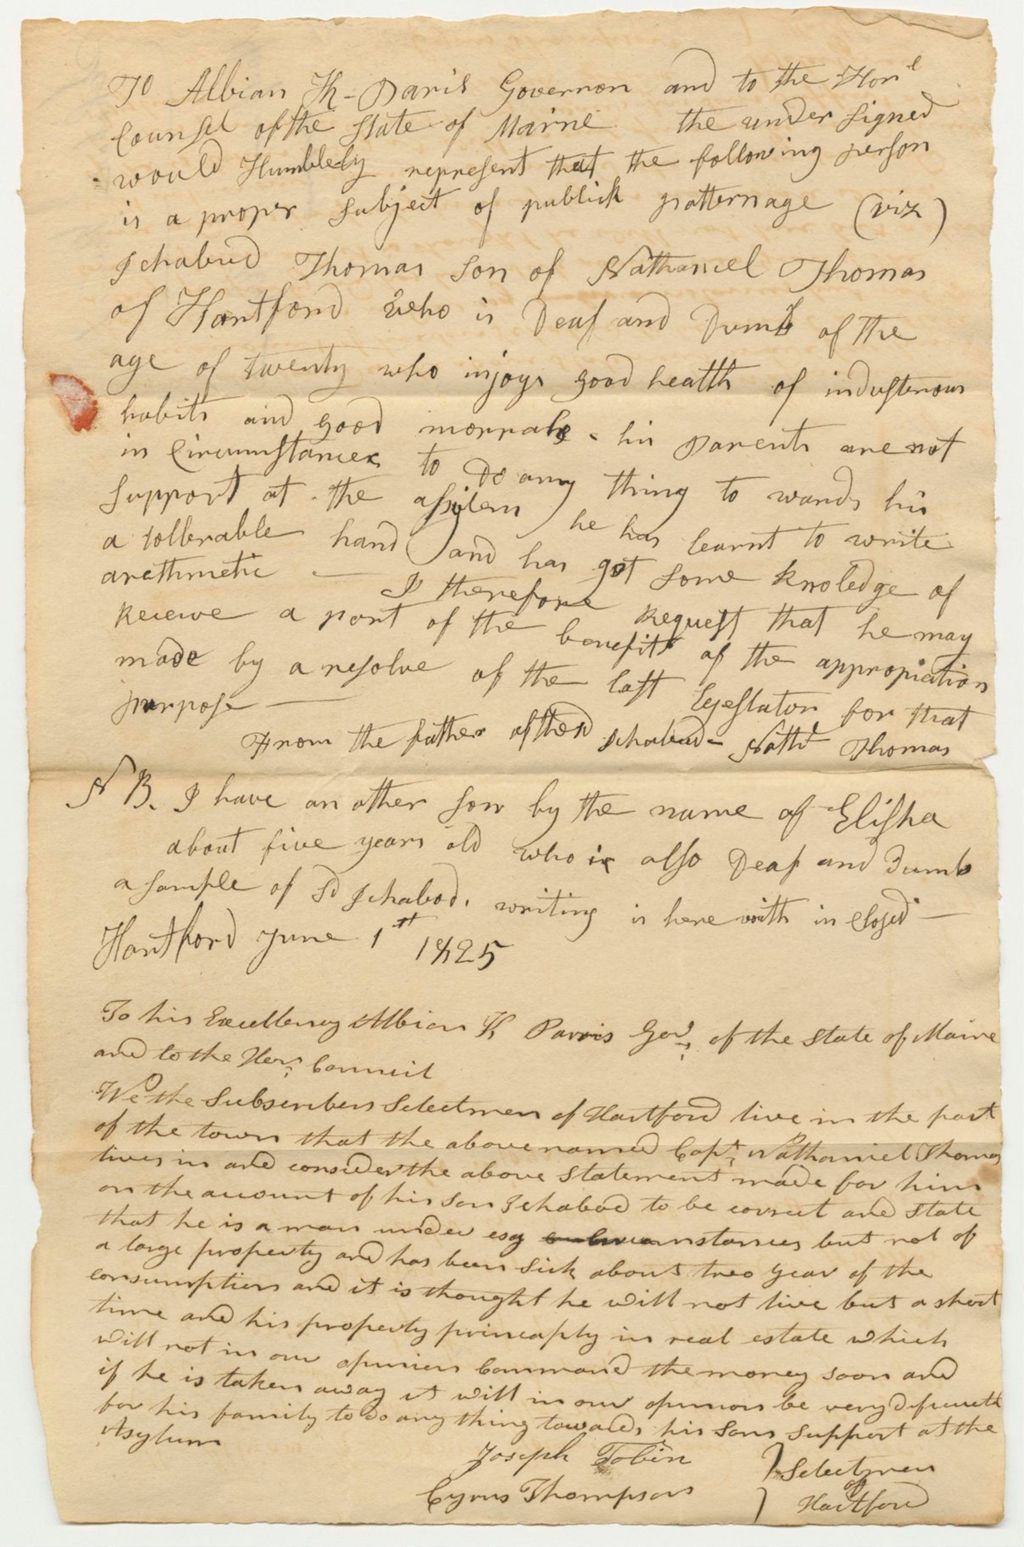 To Albian K- Paris Governor and to the Honl
Counsel of the State of Maine the under signed
would Humblely represent that the following person
is a proper subject of publick patternage (viz)
Ichabud Thomas son of Nathaniel Thomas
of Hartford who is Deaf and Dumb of the
age of twenty who injoys good health of industerous
habits and good morrals - his Parents are not
in Circumstances to Do any thing to wards his
support at the asylem he has learnt to write
a tollerable hand and has got some knoledge of
arethmetic — I therefore request that he may
Receive a part of the benefits of the appropiation
made by a resolve of the last legeslator for that
purpose —
From the father of the sd Ichabud - Nathl Thomas
N B. I have an other son by the name of Elisha
about five years old who is also Deaf and Dumb
a sample of sd Ichabod. writing is here with in closed —
Hartford June 1st 1825
To his Excellency Albion K Parris Govr. of the State of Maine
and to the Hon. Council
We the Subscribers Selectmen of Hartford live in the part
of the town that the above named Capt. Nathaniel Thomas
lives in and consider the above Statement made for him
on the account of his son Ichabod to be correct and state
that he is a man under esy circumstances but not of
a large property and has been sick about two year of the
consumption and it is thought he will not live but a short
time and his property princaply in real estate which
will not in our opinion Command the money soon and
if he is taken away it will in our opinion be very dificult
for his family to do any thing towards his sons support at the
Asylum
Joseph Tobin } Selectmen
of
Cyrus Thompson } Hartford